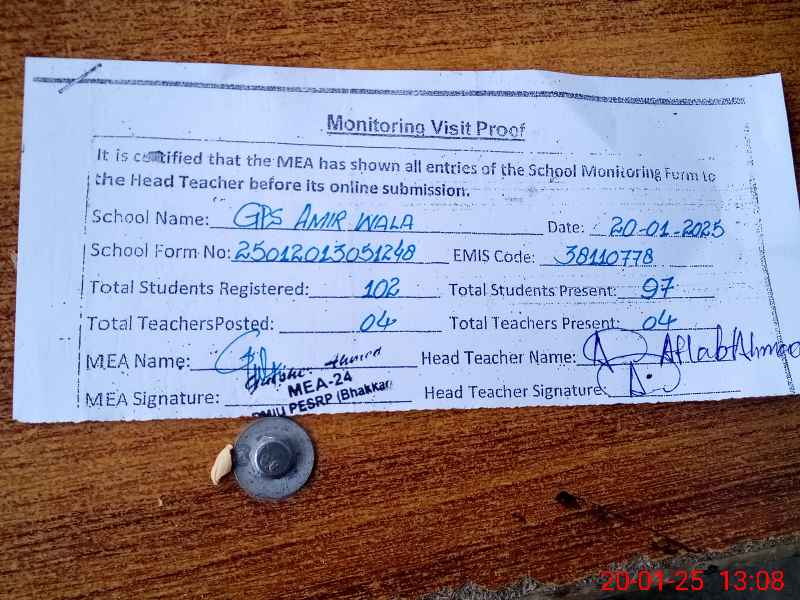 Monitoring Visit Proof
It is certified that the MEA has shown all entries of the School Monitoring Form to
the Head Teacher before its online submission.
School Name: GPS AMIR WALA Date: 20-01-2025
School Form No: 25012013051248 EMIS Code: 38110778
Total Students Registered: 102 Total Students Present: 97
Total TeachersPosted: 04 Total Teachers Present: 04
MEA Name: Head Teacher Name: Aftab Ahmad
Ahmed
MEA-24
MEA Signature: Head Teacher Signature:
DMIU PESRP (Bhakkar)
20-01-25 13:08